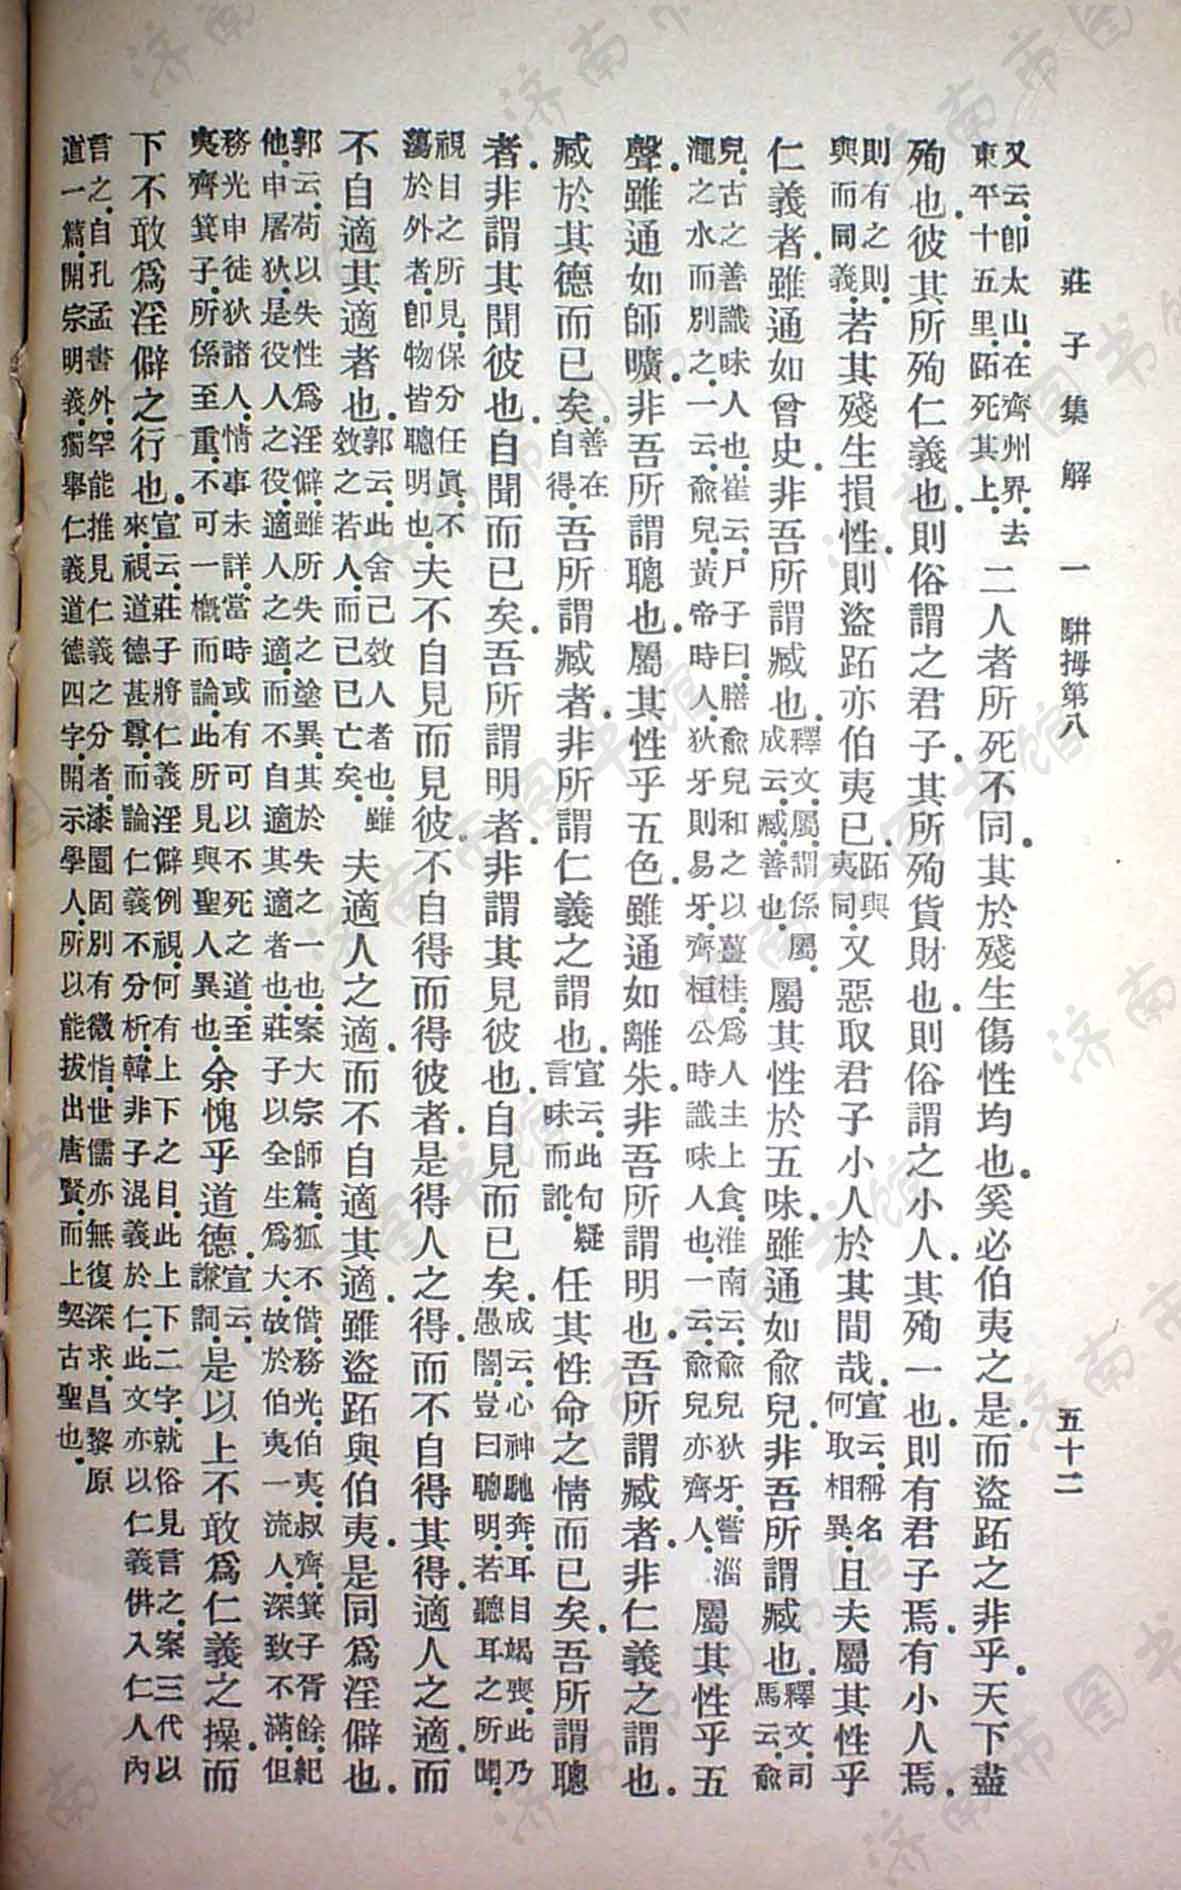 莊子集解　一　駢拇第八　五十二
又云。卽太山。在齊州界。去東平十五里。跖死其上。二人者所死不同。其於殘生傷性均也。奚必伯夷之是。而盜跖之非乎。天下盡
殉也。彼其所殉仁義也。則俗謂之君子。其所殉貨財也。則俗謂之小人。其殉一也。則有君子焉。有小人焉。
則有之則。與而同義。若其殘生損性。則盜跖亦伯夷已。跖與夷同。又惡取君子小人於其間哉。宣云。稱名何取相異。且夫屬其性乎
仁義者。雖通如曾史。非吾所謂臧也。釋文。屬謂係屬。成云。臧善也。屬其性於五味。雖通如俞兒。非吾所謂臧也。釋文。司馬云。俞
兒。古之善識味人也。崔云。尸子曰。膳俞兒和之以薑桂。爲人主上食。淮南云。俞兒狄牙。嘗淄澠之水而別之。一云。俞兒。黃帝時人。狄牙則易牙。齊桓公時識味人也。一云。俞兒亦齊人。屬其性乎五
聲。雖通如師曠。非吾所謂聰也。屬其性乎五色。雖通如離朱。非吾所謂明也。吾所謂臧者。非仁義之謂也。
臧於其德而已矣。善在自得。吾所謂臧者。非所謂仁義之謂也。宣云。此句疑言味而訛。任其性命之情而已矣。吾所謂聰
者。非謂其聞彼也。自聞而已矣。吾所謂明者。非謂其見彼也。自見而已矣。成云。心神馳奔。耳目竭喪。此乃愚闇。豈曰聰明。若聽耳之所聞。
視目之所見。保分任眞。不蕩於外者。卽物皆聰明也。夫不自見而見彼。不自得而得彼者。是得人之得。而不自得其得。適人之適。而
不自適其適者也。郭云。此舍己效人者也。雖效之若人。而己已亡矣。夫適人之適。而不自適其適。雖盜跖與伯夷。是同爲淫僻也。
郭云。苟以失性爲淫僻。雖所失之塗異。其於失之一也。案大宗師篇。狐不偕。務光。伯夷。叔齊。箕子胥餘。紀他。申屠狄。是役人之役。適人之適。而不自適其適者也。莊子以全生爲大。故於伯夷一流人。深致不滿。但
務光申徒狄諸人。情事未詳。當時或有可以不死之道。至夷齊箕子。所係至重。不可一概而論。此所見與聖人異也。余愧乎道德。宣云。謙詞。是以上不敢爲仁義之操。而
下不敢爲淫僻之行也。宣云。莊子將仁義淫僻例視。何有上下之目。此上下二字。就俗見言之。案三代以來。視道德甚尊。而論仁義不分析。韓非子混義於仁。此文亦以仁義倂入仁人內
言之。自孔孟書外。罕能推見仁義之分者。漆園固別有微恉。世儒亦無復深求。昌黎原道一篇。開宗明義。獨舉仁義道德四字。開示學人。所以能拔出唐賢。而上契古聖也。
济南市图书馆